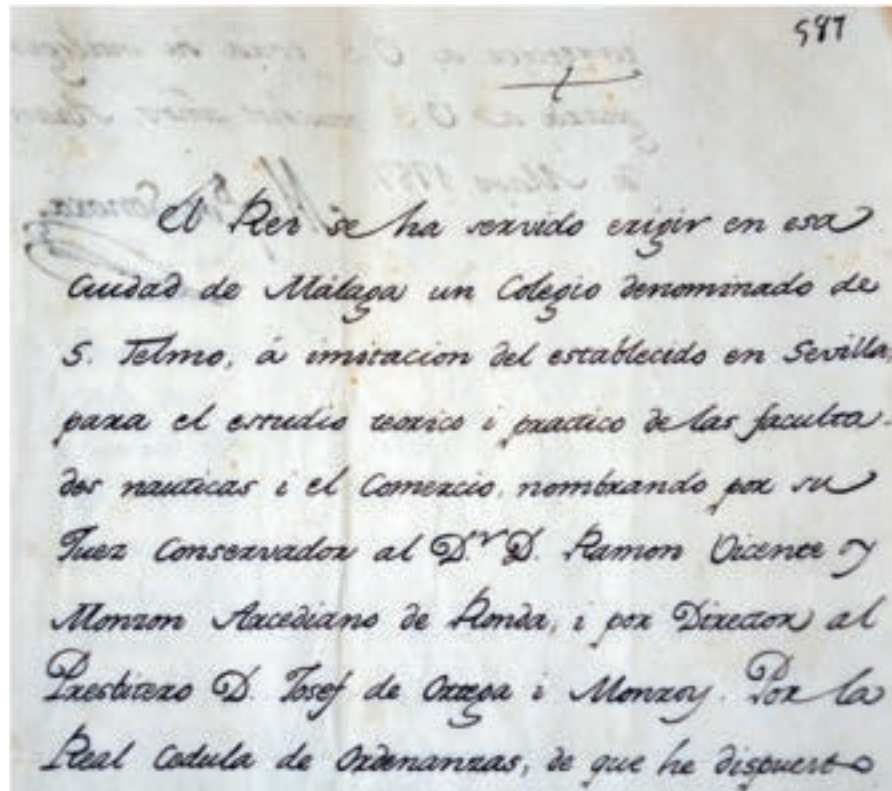 587
El Rei se ha servido erigir en esa
Ciudad de Málaga un Colegio denominado de
S. Telmo, á imitacion del establecido en Sevilla,
para el estudio teorico i practico de las faculta-
des nauticas i el Comercio, nombrando por su
Juez Conservador al D.r D. Ramon Vicente y
Monzon Arcediano de Ronda, i por Director al
Presbitero D. Josef de Ortega i Monroy. Por la
Real Cedula de Ordenanzas, de que he dispuesto